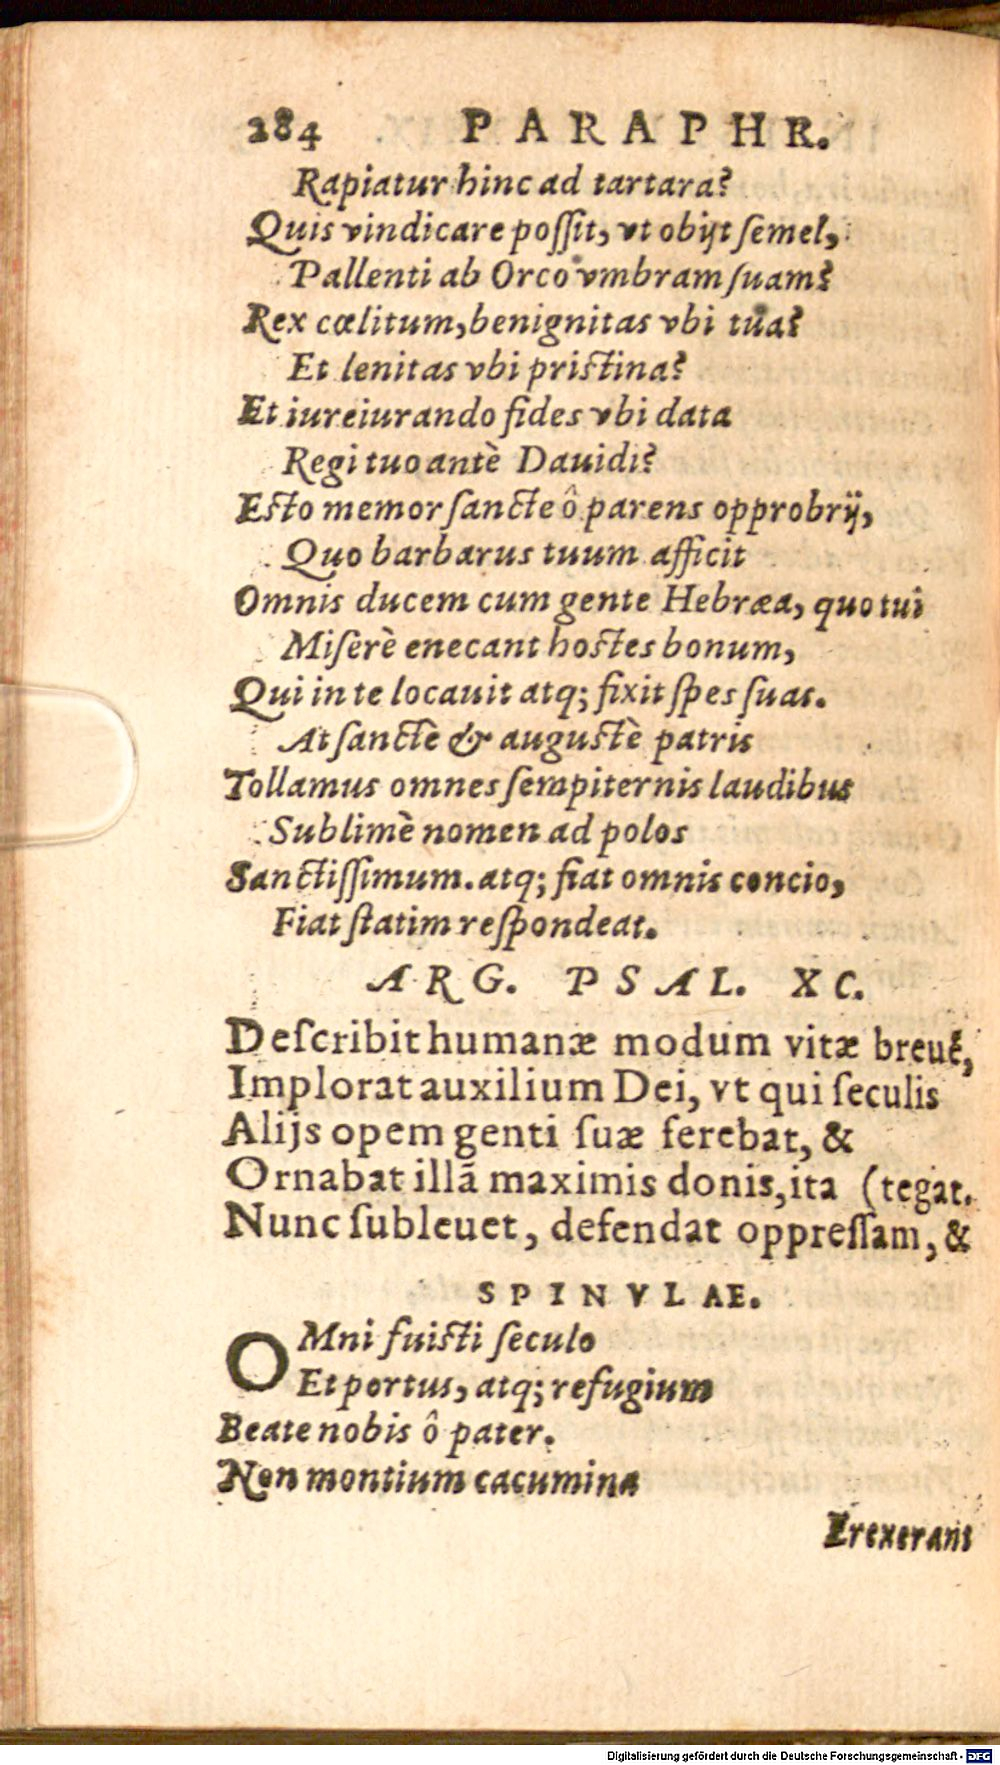 284 PARAPHR.
Rapiatur hinc ad tartara?
Quis vindicare poſſit, vt obijt ſemel,
Pallenti ab Orco vmbram ſuam?
Rex cœlitum, benignitas vbi tua?
Et lenitas vbi priſtina?
Et iureiurando fides vbi data
Regi tuo antè Dauidi?
Eſto memor ſancte ô parens opprobrij,
Quo barbarus tuum afficit
Omnis ducem cum gente Hebræa, quo tui
Miſerè enecant hoſtes bonum,
Qui in te locauit atq; fixit ſpes ſuas.
At ſanctè & auguſtè patris
Tollamus omnes ſempiternis laudibus
Sublimè nomen ad polos
Sanctiſſimum. atq; fiat omnis concio,
Fiat ſtatim reſpondeat.
ARG. PSAL. XC.
Deſcribit humanæ modum vitæ breuẽ,
Implorat auxilium Dei, vt qui ſeculis
Alijs opem genti ſuæ ferebat, &
Ornabat illã maximis donis, ita (tegat.
Nunc ſubleuet, defendat oppreſſam, &
SPINVLAE.
OMni fuiſti ſeculo
Et portus, atq; refugium
Beate nobis ô pater.
Non montium cacumina
Erexerant
Digitalisierung gefördert durch die Deutsche Forschungsgemeinschaft - DFG